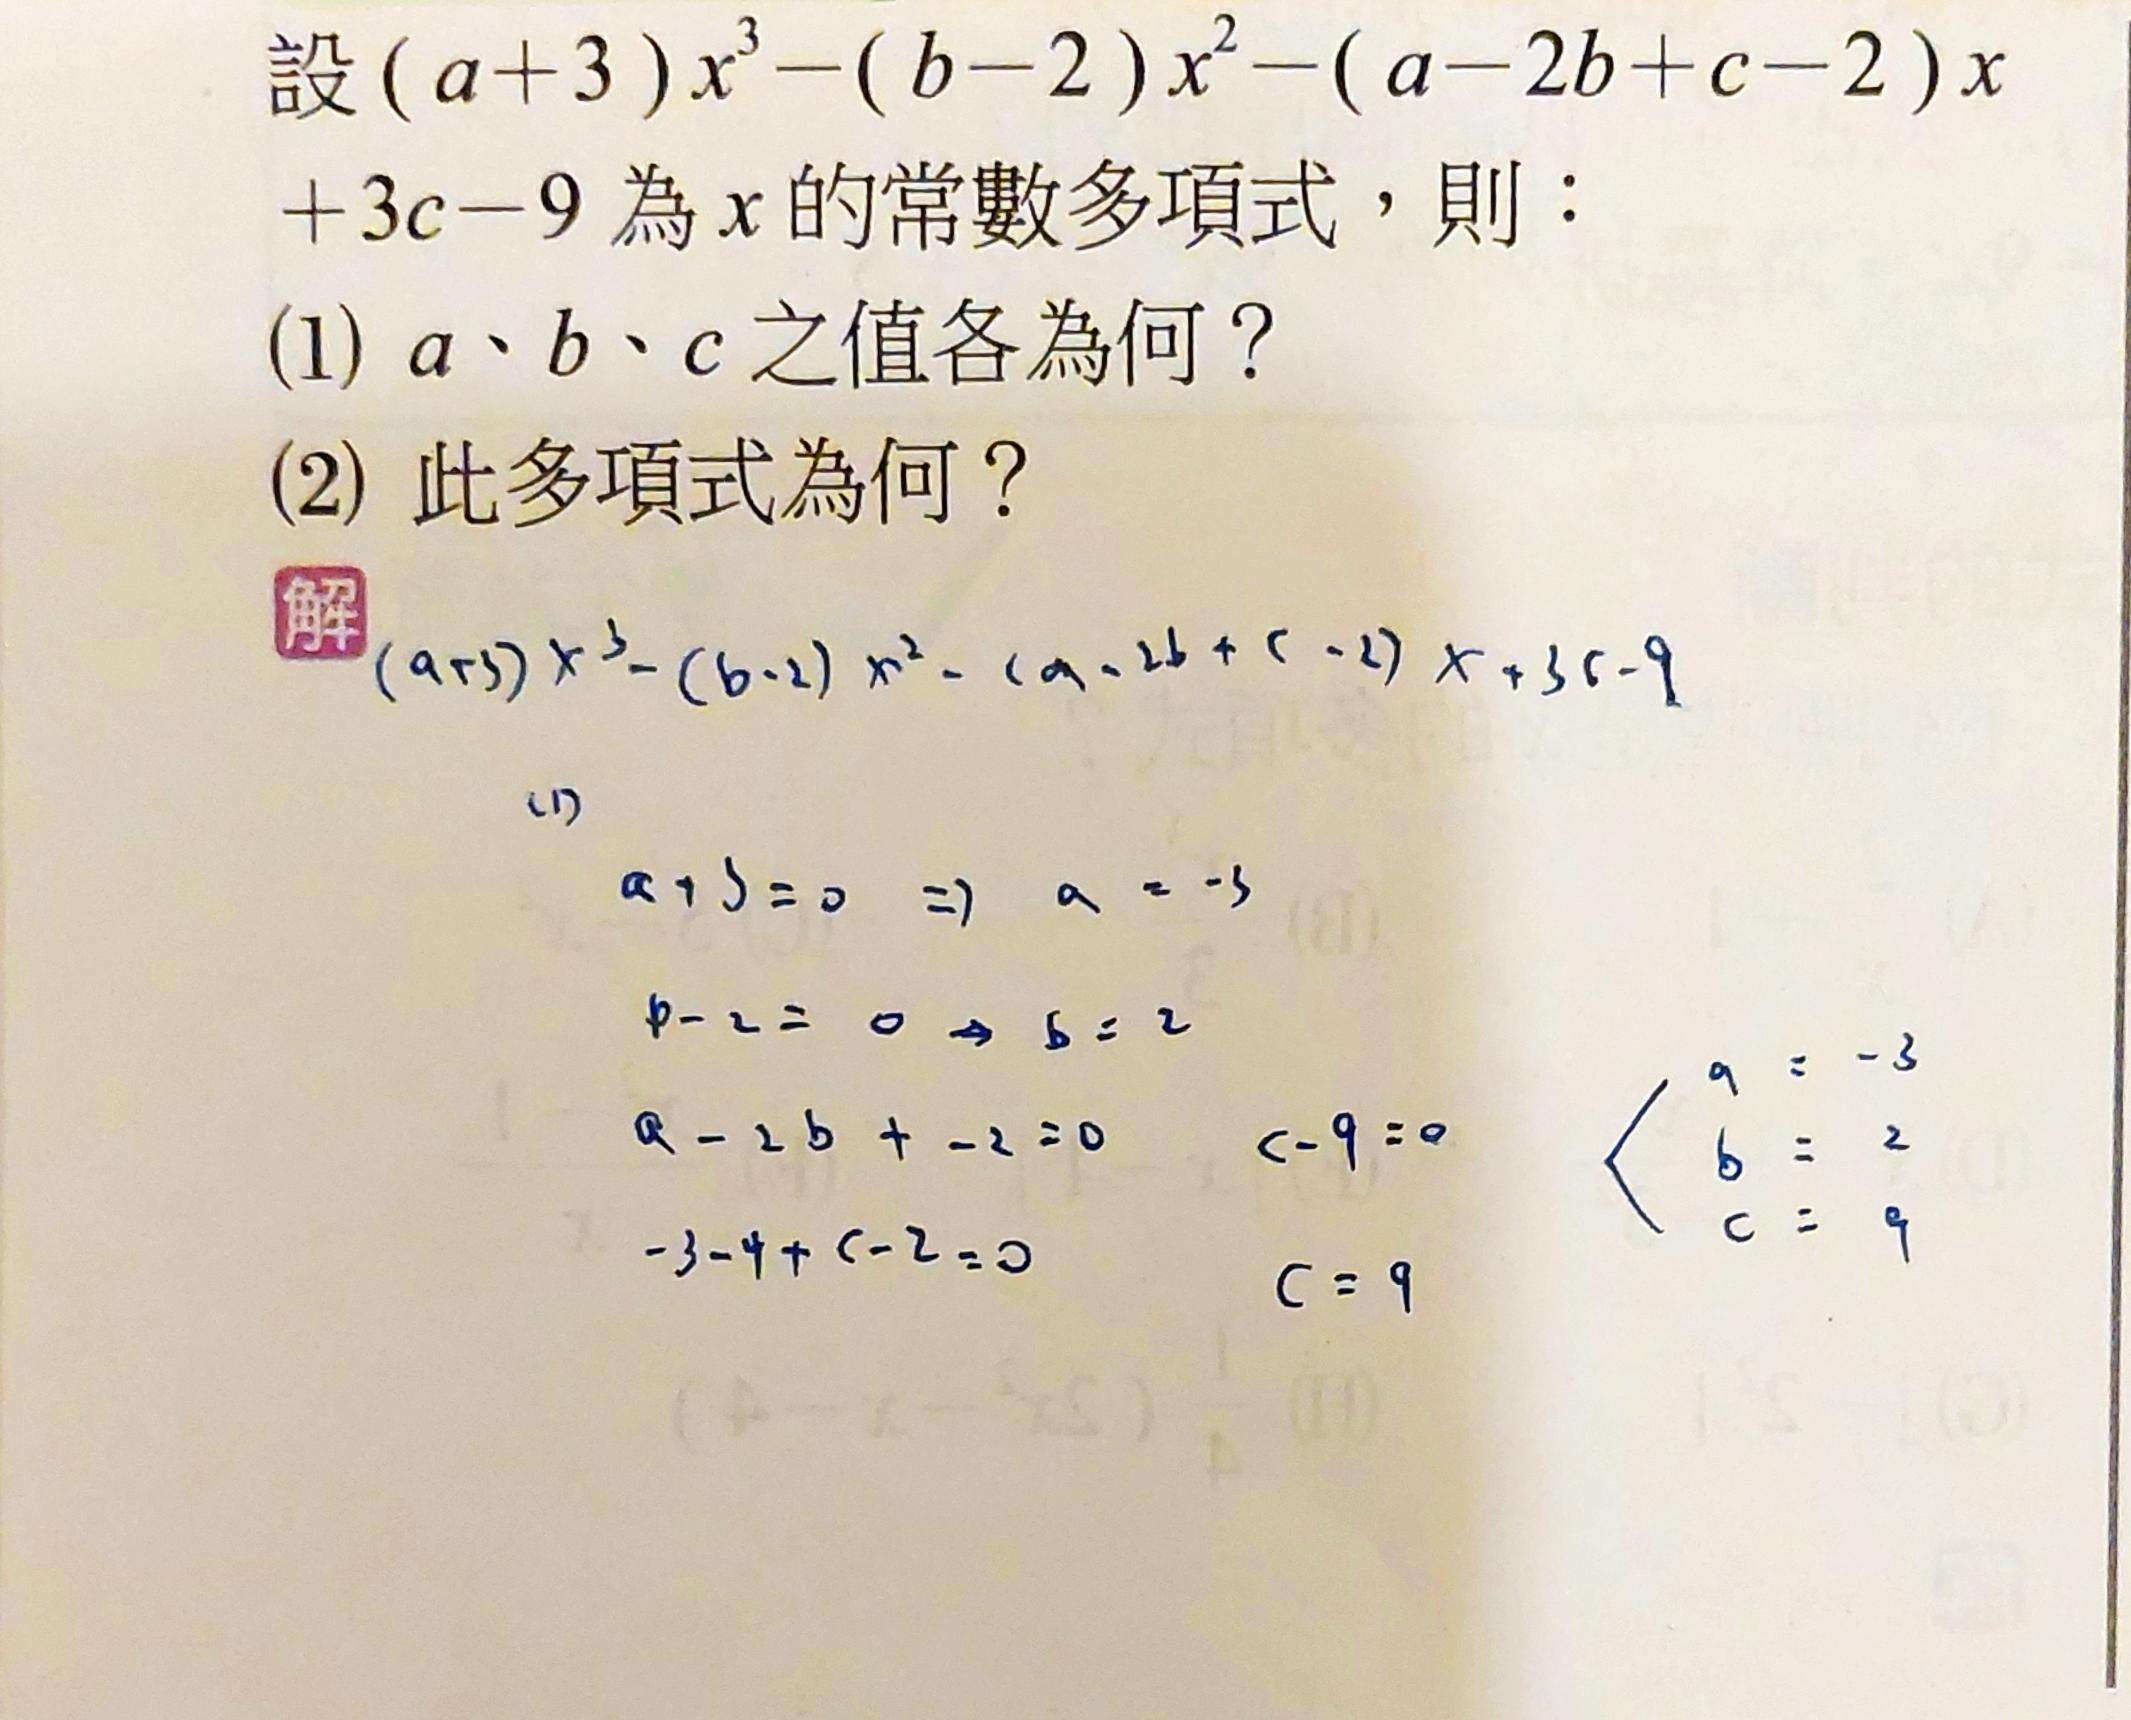 設(a+3)x³－(b－2)x²－(a－2b+c－2)x
+3c－9 為 x 的常數多項式，則：
(1) a、b、c 之值各為何？
(2) 此多項式為何？
解
(a+3)x³-(b-2)x²-(a-2b+c-2)x+3c-9
(1)
a+3=0 => a=-3
b-2=0 → b=2
a-2b+-2=0 c-9=0
-3-4+c-2=0 c=9
a=-3
b=2
c=9